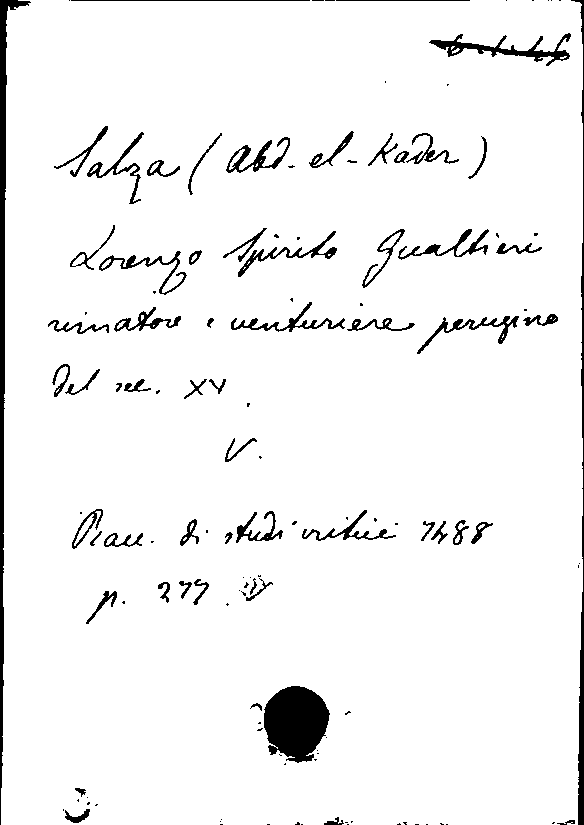 Salza (Abd-el-Kader)
Lorenzo Spirito Gualtieri
rimatore e venturiere perugino
del sec. XV.
V.
Racc. di studi critici 7488
p. 277